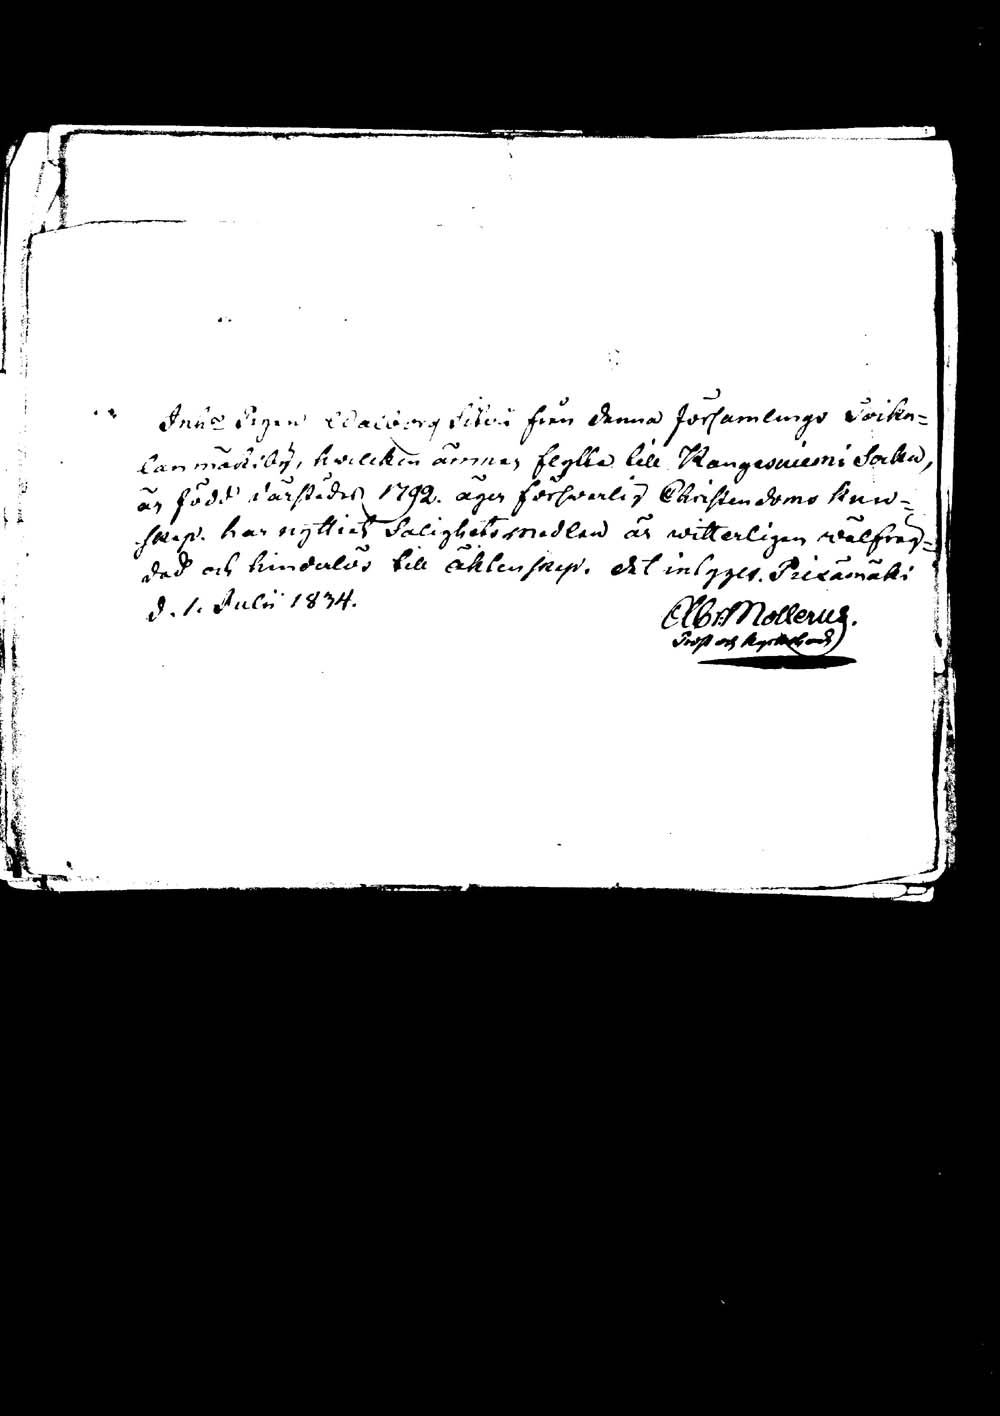 Inhs Pigan Walborg från denna Församlings Toika=
lanmäki by, hwilcken ämnar flytta till Kangasniemi Sockn,
är född därstädes 1792. äger förswarlig Christendoms kun=
skap. har nyttiat Salighets medlen är witterligen wälfräg=
dad och hinderlös till äktenskap. det intygas. Piexämäki
d. 1. Julii 1834.
Abr: Mollerus.
Prost och Kyrkoherde